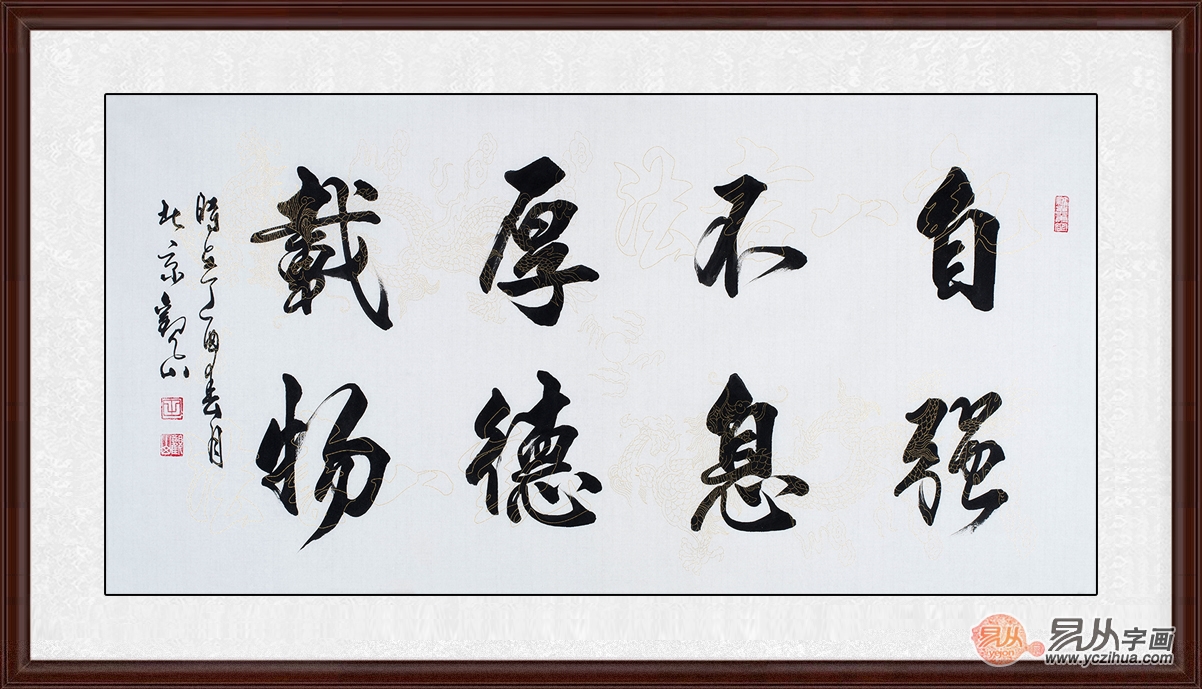 自强
不息
厚德
载物
時在丁酉春月
北京观山
易从
易从字画
www.yczihua.com